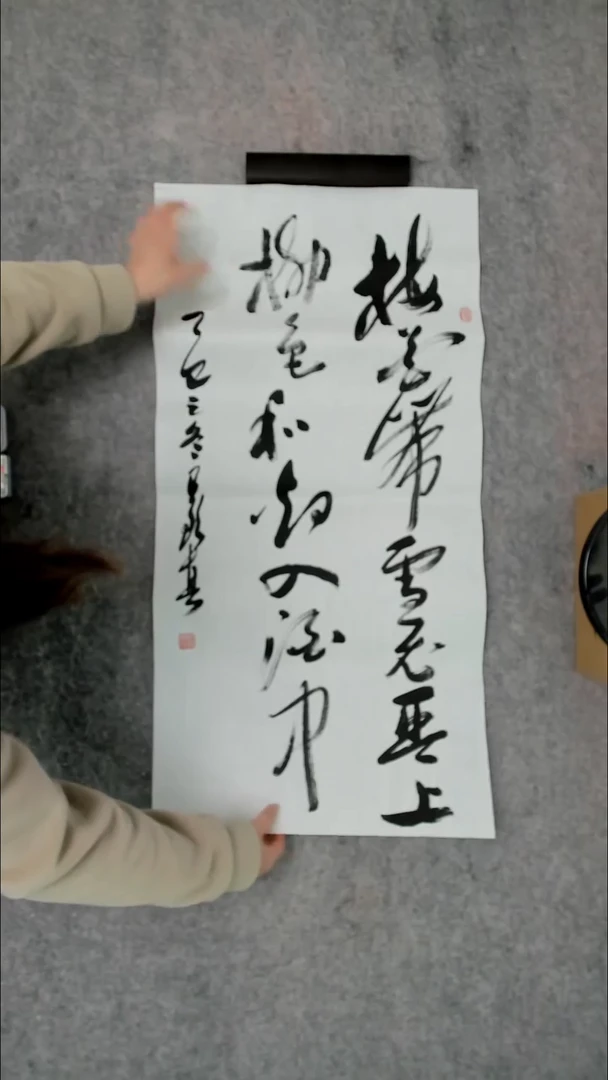 梅花帶雪飛琴上
柳色和烟入酒中
丁巳之冬